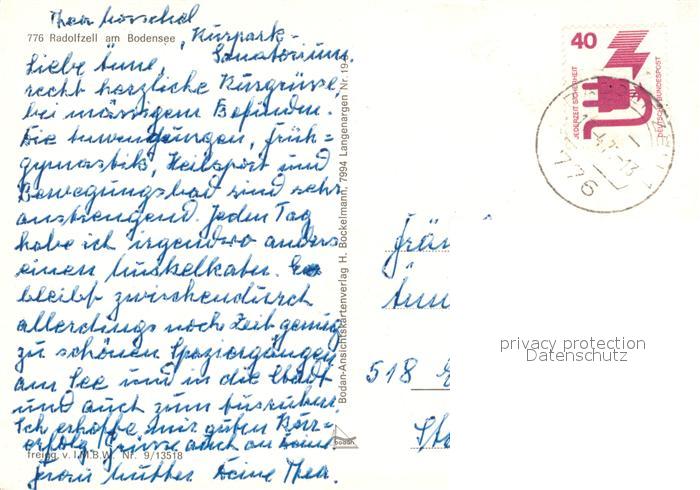 Thea Morschel
776 Radolfzell am Bodensee, Kurpark-
Sanatorium.
Liebe Änne,
recht herzliche Kurgrüsse,
bei mässigem Befinden.
Die Anwendungen, Früh=
gymnastik, Heilsport und
Bewegungsbad sind sehr
anstrengend. Jeden Tag
habe ich irgendwo anders
einen Muskelkater. Es
bleibt zwischendurch
allerdings noch Zeit genug
zu schönen Spaziergängen
am See und in die Stadt
und auch zum Ausruhen.
Ich erhoffe mir guten Kur=
erfolg. Grüsse auch an Deine
freig. v. I.M.B.W. Nr. 9/13518
Frau Mutter Deine Thea.
Bodan-Ansichtskartenverlag H. Bockelmann, 7994 Langenargen Nr.
bodan
40
JEDERZEIT SICHERHEIT
DEUTSCHE BUNDESPOST
776
Fräu
Änn
518
privacy protection
Datenschutz